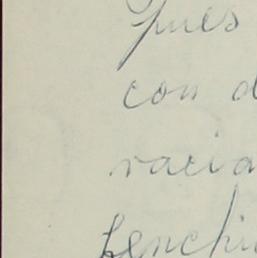 Pues
con d
vacia
henchi